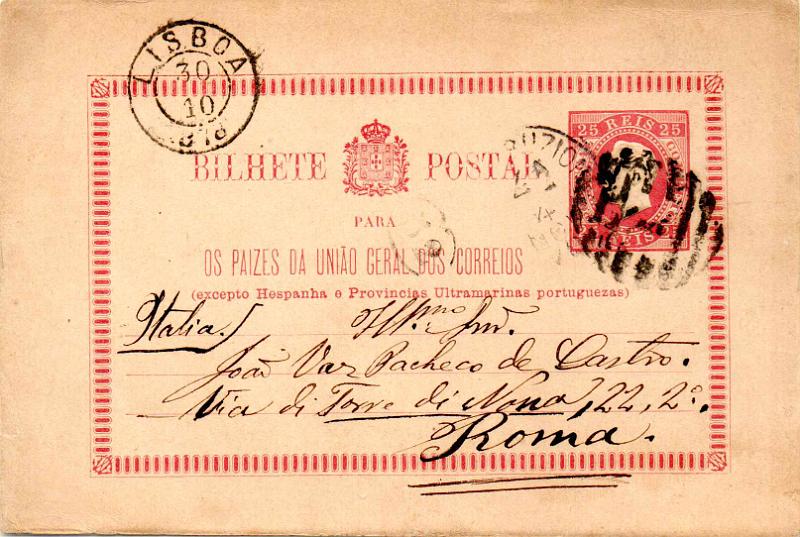 LISBOA
30
10
1878
25 REIS 25
BILHETE POSTAL
PARA
OS PAIZES DA UNIÃO GERAL DOS CORREIOS
(excepto Hespanha e Provincias Ultramarinas portuguezas)
Italia.
Ill.mo Snr.
João Vaz Pacheco de Castro.
Via di Torre di Nona, 22, 2º.
Roma.